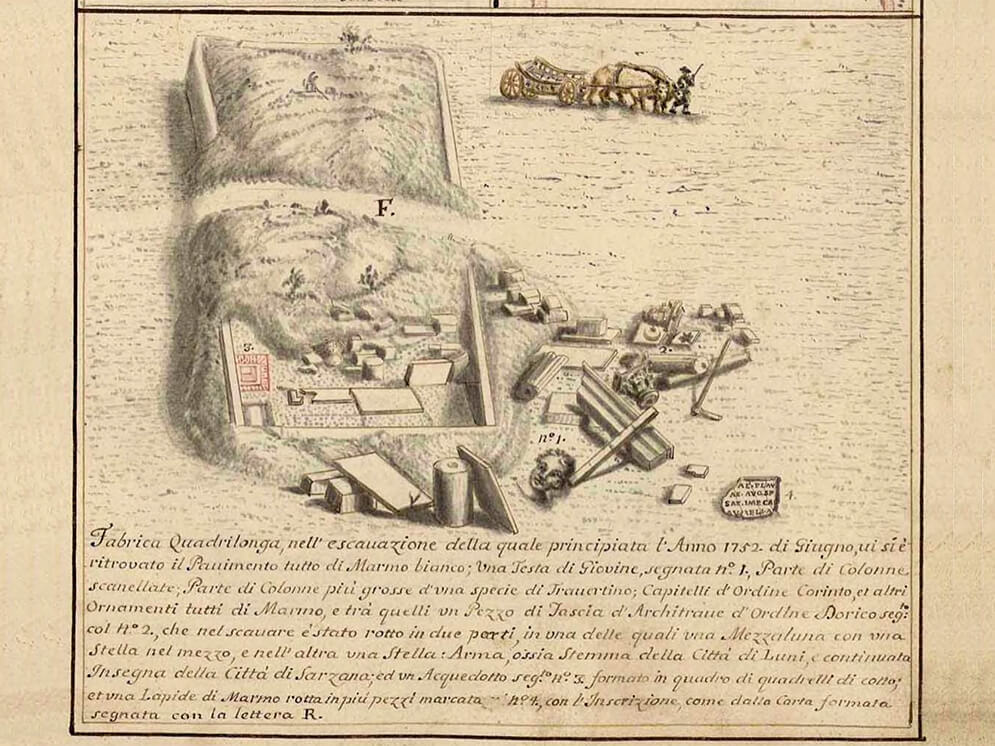 F.
3.
2.
nº 1.
AE. FLAV
4.
Fabrica Quadrilonga, nell' escauazione della quale principiata l'Anno 1752. di Giugno, ui si è
ritrovato il Pauimento tutto di Marmo bianco; Vna Testa di Giovine, segnata nº. 1., Parte di Colonne
scanellate; Parte di Colonne più grosse d'vna specie di Trauertino; Capitelli d'Ordine Corinto, et altri
Ornamenti tutti di Marmo, e trà quelli vn Pezzo di Fascia d'Architraue d'Ordine Dorico seg.to
col Nº 2., che nel scauare è stato rotto in due parti, in vna delle quali vna Mezzaluna con vna
Stella nel mezzo, e nell'altra vna Stella: Arma, ossia Stemma della Città di Luni, e continuata
Insegna della Città di Sarzana; ed vn Acquedotto seg.to nº 3. formato in quadro di quadrelli di cotto;
et vna Lapide di Marmo rotta in più pezzi marcata nº 4., con l'Inscrizione, come dalla Carta formata
segnata con la lettera R.